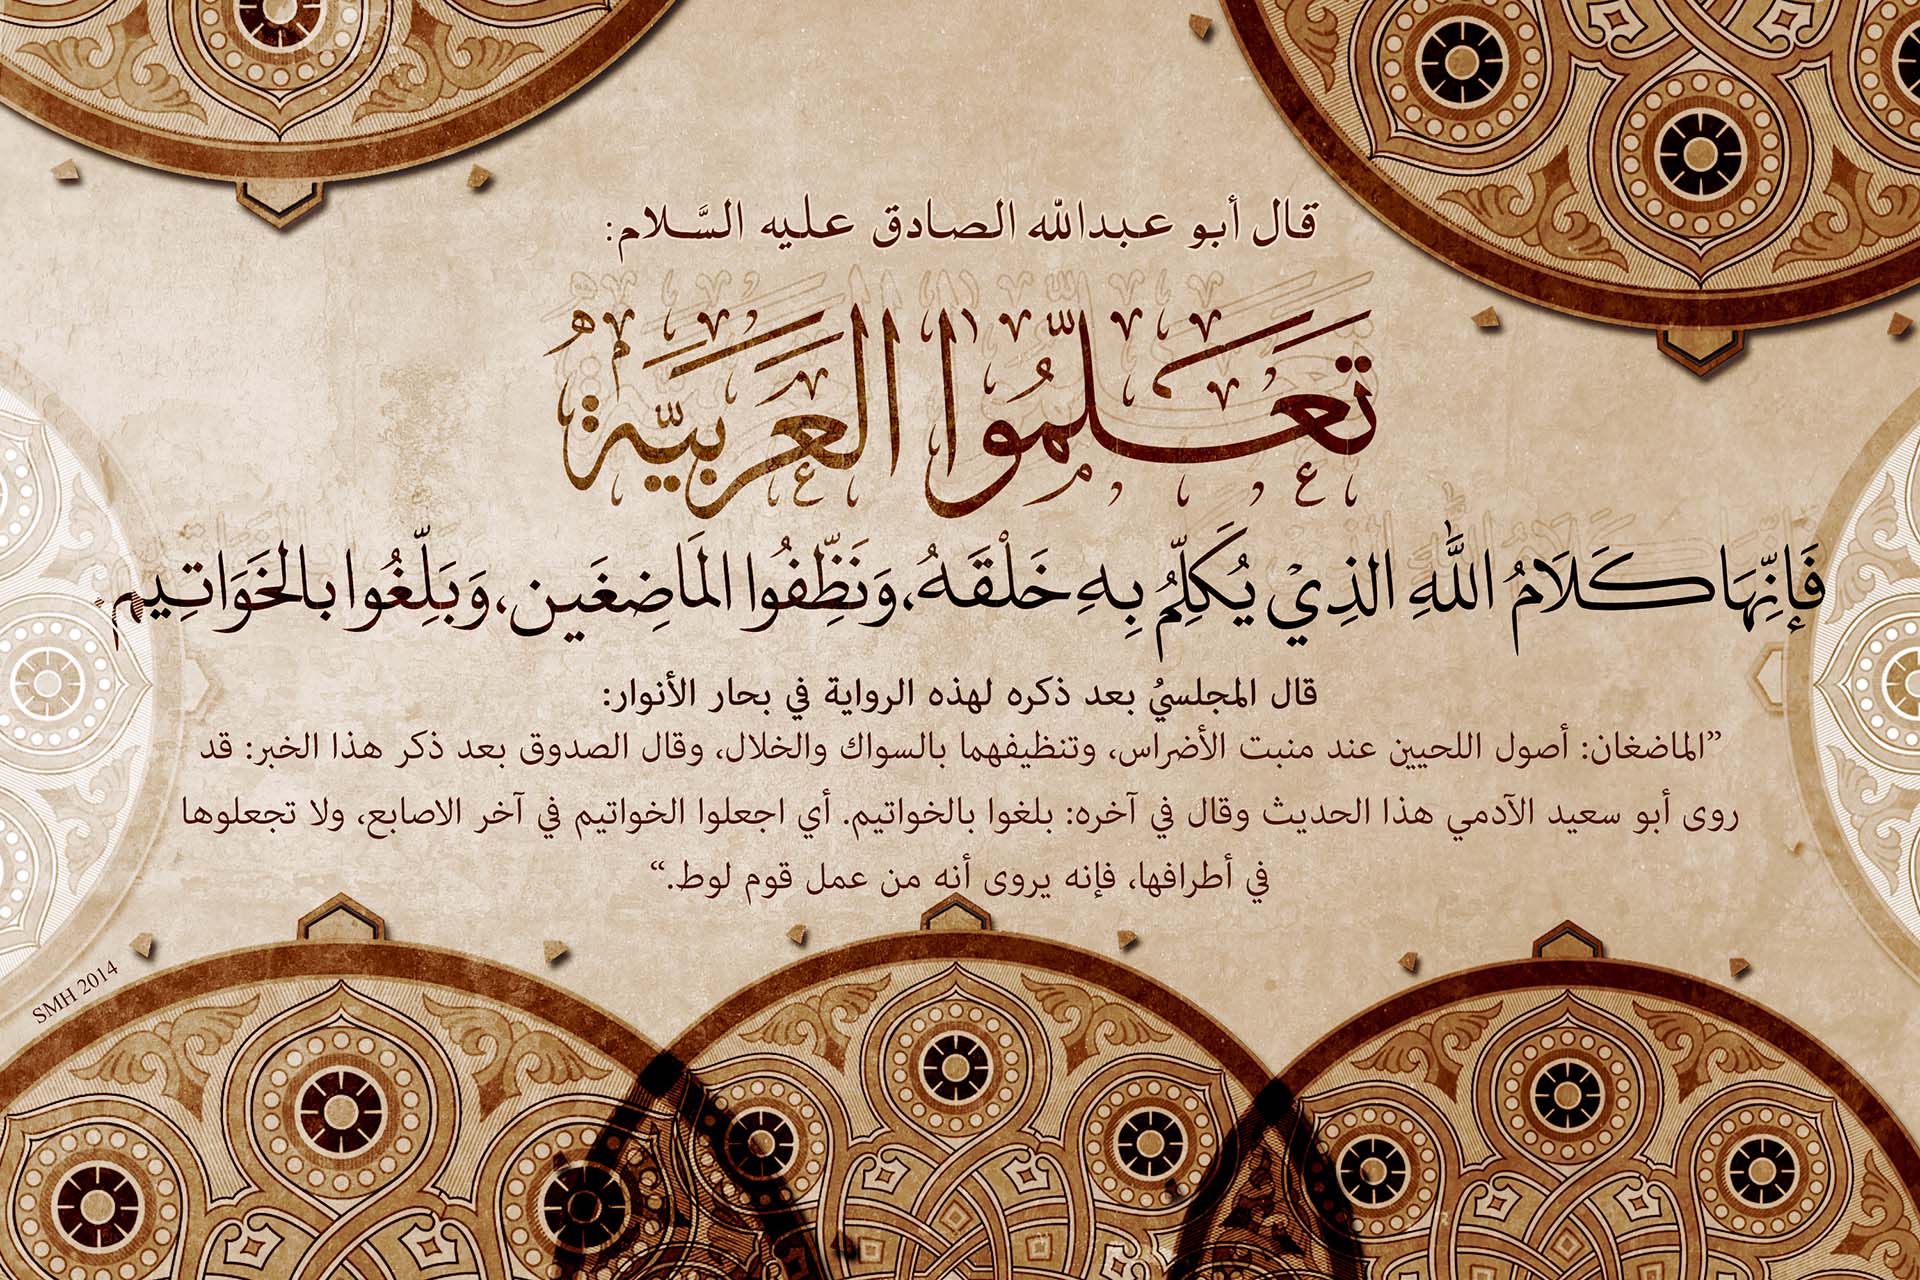 قال أبو عبدالله الصادق عليه السَّلام:
تَعَلَّمُوا العَرَبِيَّةَ
فَإِنَّهَا كَلَامُ اللَّهِ الذِيْ يُكَلِّمُ بِهِ خَلْقَهُ، وَنَظِّفُوا المَاضِغَين، وَبَلِّغُوا بالخَوَاتِيم
قال المجلسيُ بعد ذكره لهذه الرواية في بحار الأنوار:
”الماضغان: أصول اللحيين عند منبت الأضراس، وتنظيفهما بالسواك والخلال، وقال الصدوق بعد ذكر هذا الخبر: قد
روى أبو سعيد الآدمي هذا الحديث وقال في آخره: بلغوا بالخواتيم. أي اجعلوا الخواتيم في آخر الاصابع، ولا تجعلوها
في أطرافها، فإنه يروى أنه من عمل قوم لوط.“
SMH 2014